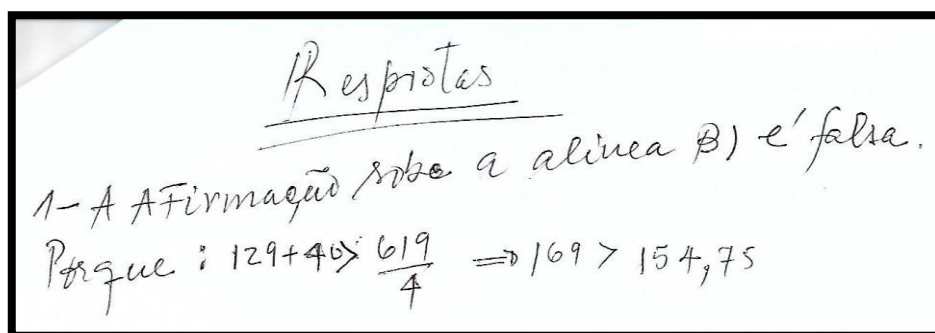 Respostas
1- A AFirmação sobe a alinea B) é falsa.
Porque : 129+40> 619/4 => 169 > 154,75